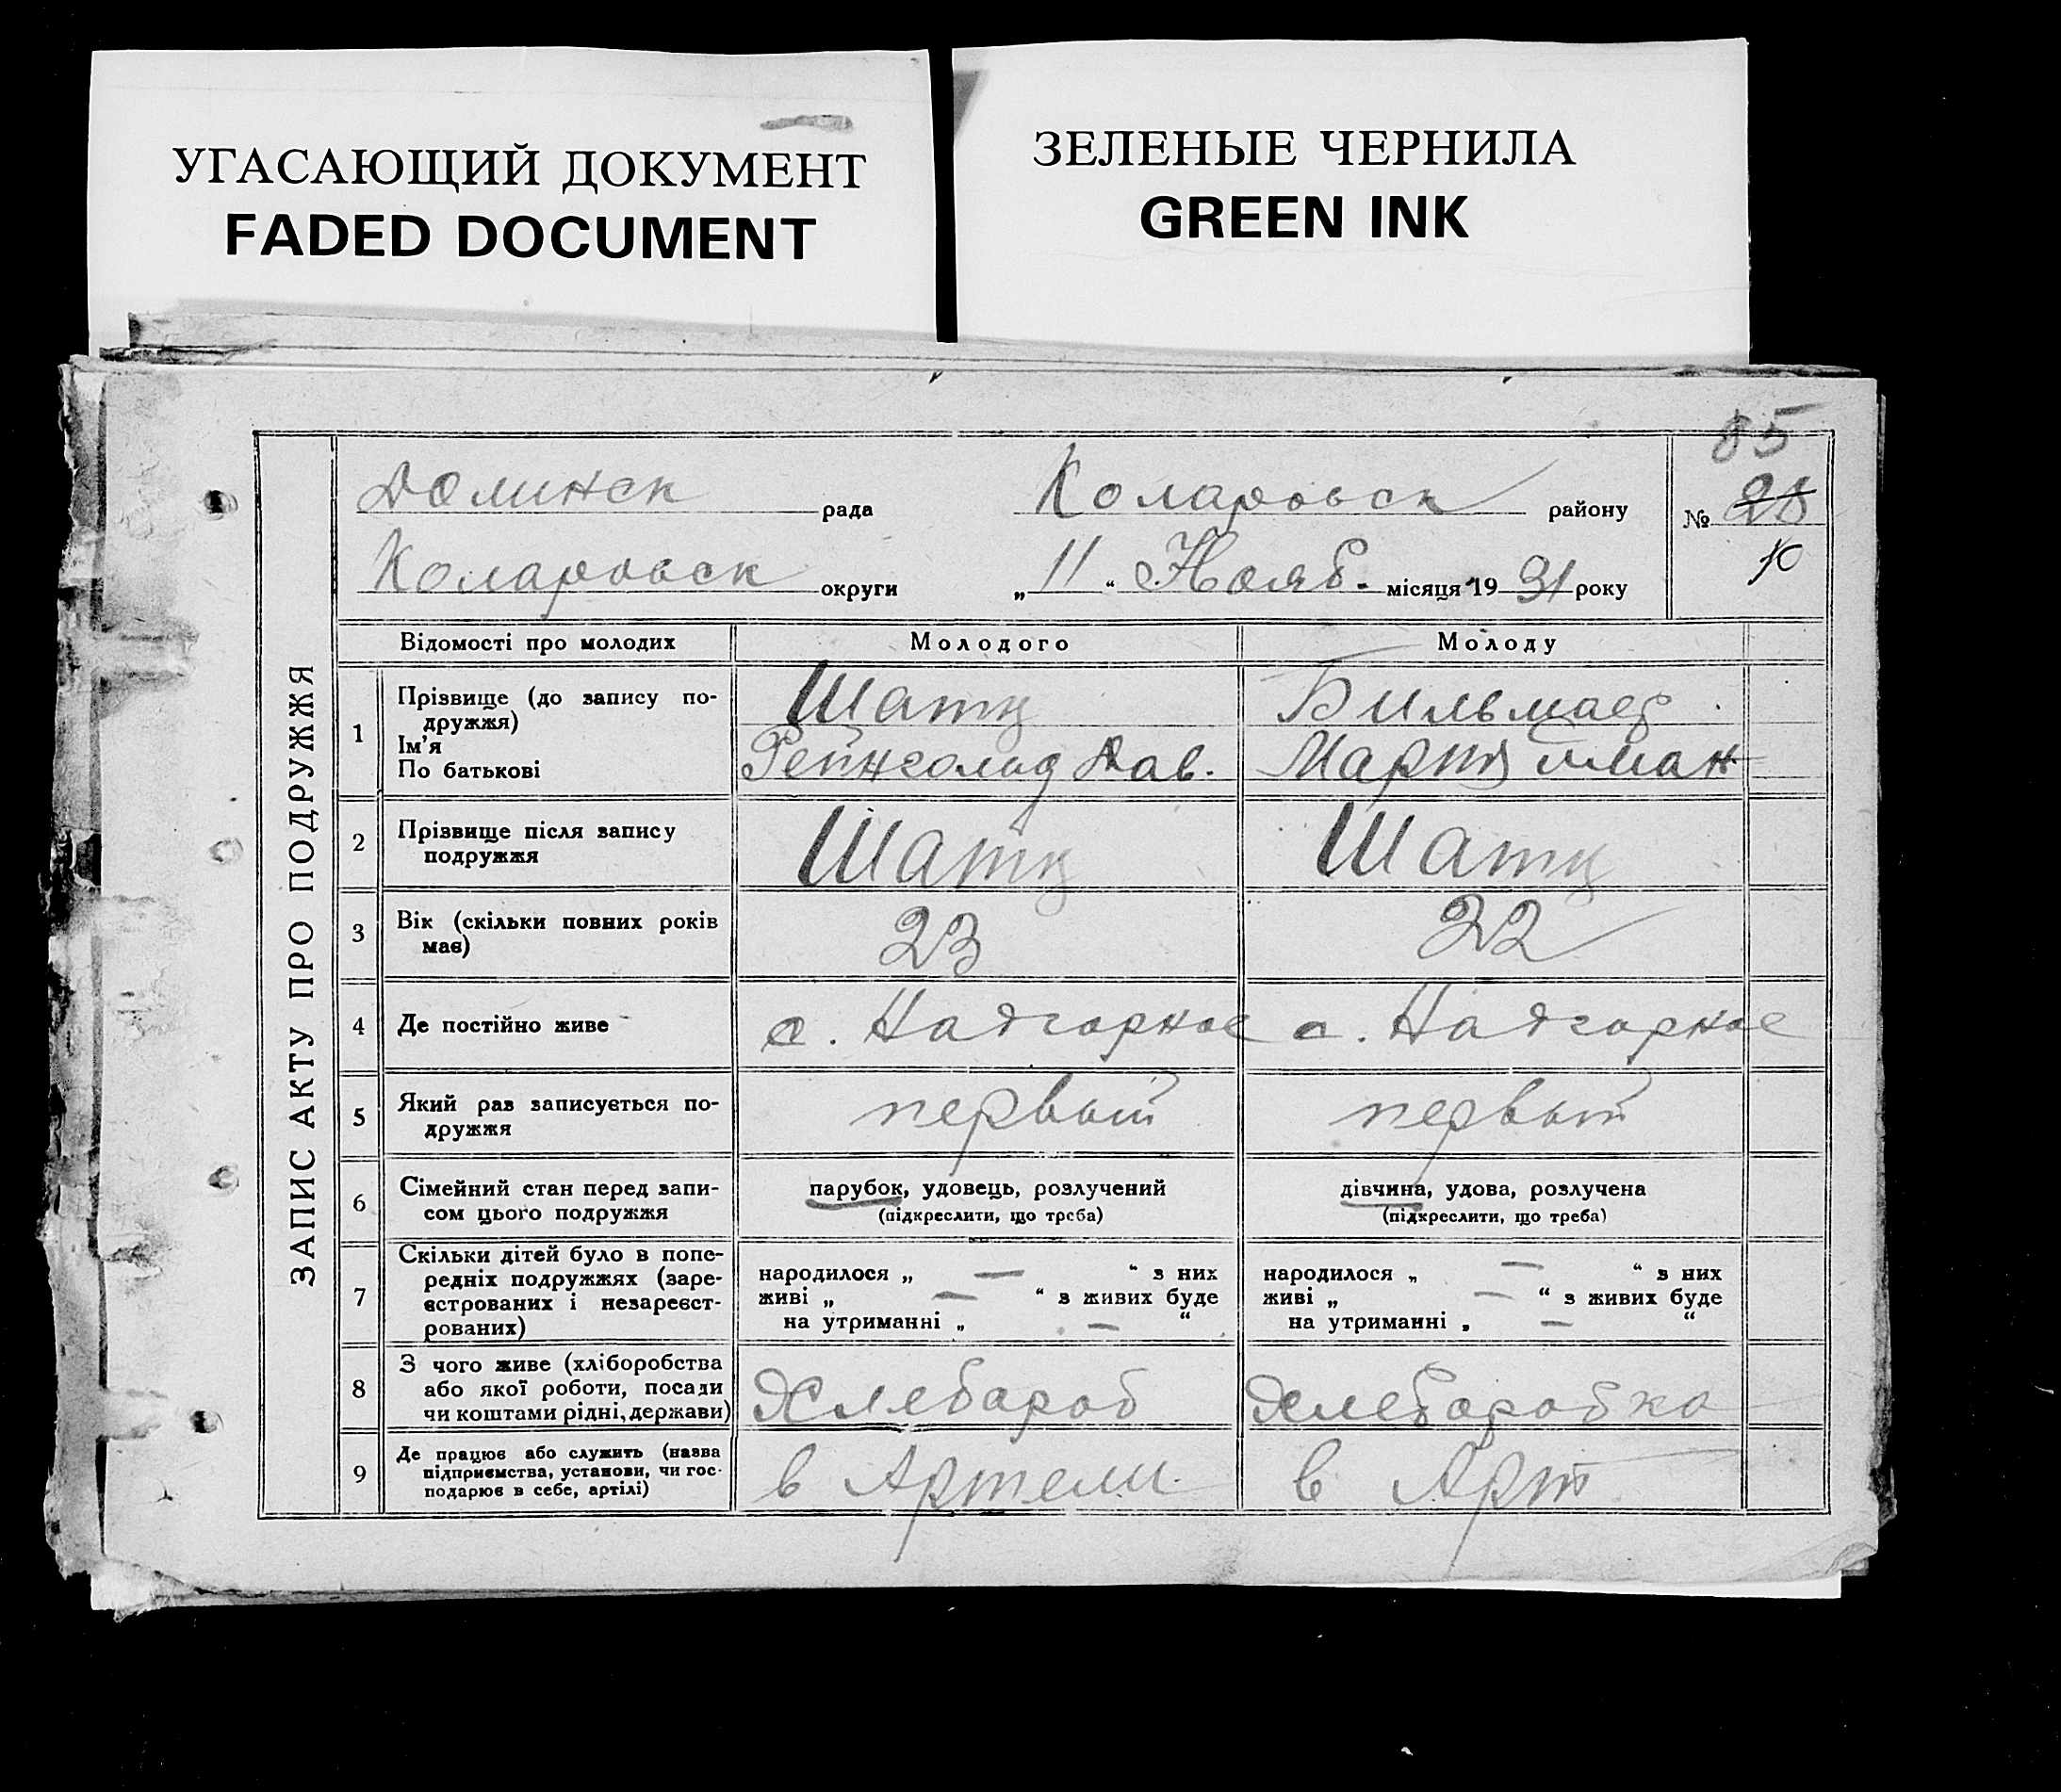 УГАСАЮЩИЙ ДОКУМЕНТ
FADED DOCUMENT
ЗЕЛЕНЫЕ ЧЕРНИЛА
GREEN INK
85
ЗАПИС АКТУ ПРО ПОДРУЖЖЯ
Долинск рада Коларовск району № 28
Коларовск округи „11“ Нояб. місяця 1931 року
10
Відомості про молодих Молодого Молоду
1 Прізвище (до запису по-
дружжя)
Ім'я
По батькові
Шатц
Рейнгольд Дав.
Бильмаер
Мария
2 Прізвище після запису
подружжя
Шатц Шатц
3 Вік (скільки повних років
має)
23 22
4 Де постійно живе с. Надгорное с. Надгорное
5 Який раз записується по-
дружжя
первый первый
6 Сімейний стан перед запи-
сом цього подружжя
парубок, удовець, розлучений
(підкреслити, що треба)
дівчина, удова, розлучена
(підкреслити, що треба)
7 Скільки дітей було в попе-
редніх подружжях (заре-
єстрованих і незареєст-
рованих)
народилося „ — “ з них
живі „ — “ з живих буде
на утриманні „ — “
народилося „ — “ з них
живі „ — “ з живих буде
на утриманні „ — “
8 З чого живе (хліборобства
або якої роботи, посади
чи коштами рідні, держави)
Хлебароб Хлебаробка
9 Де працює або служить (назва
підприємства, установи, чи гос-
подарює в себе, артілі)
в Артели в Арт